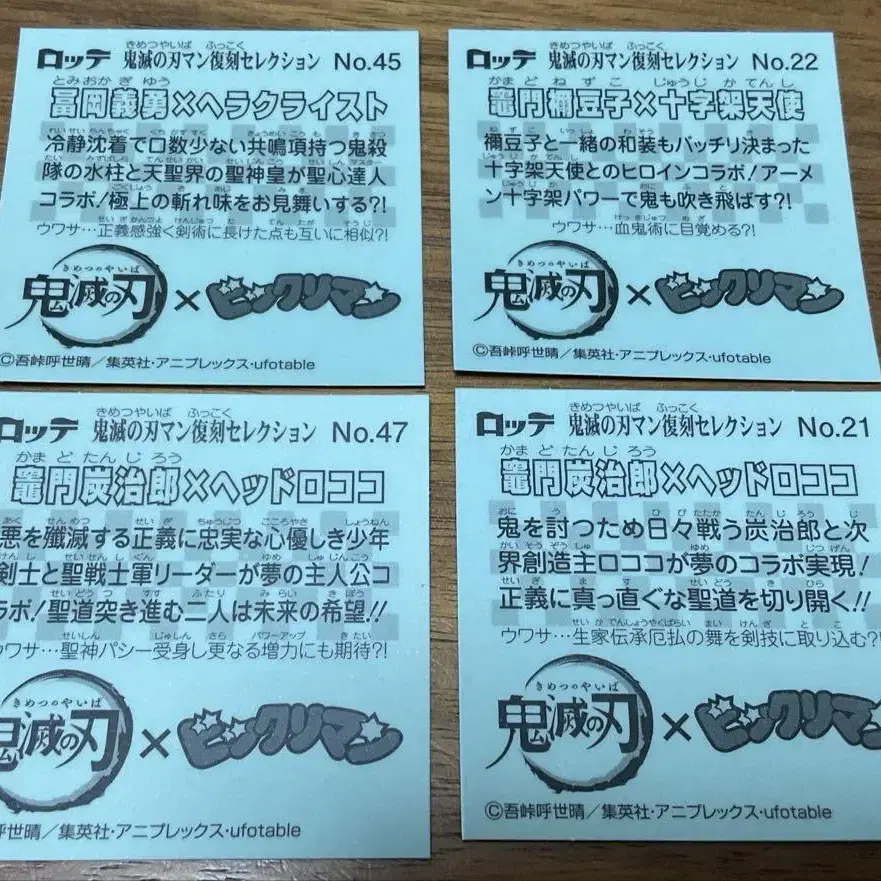 ロッテ 鬼滅の刃マン復刻セレクション No.45
冨岡義勇×ヘラクライスト
冷静沈着で口数少ない共鳴項持つ鬼殺
隊の水柱と天聖界の聖神皇が聖心達人
コラボ!極上の斬れ味をお見舞いする?!
ウワサ…正義感強く剣術に長けた点も互いに相似?!
鬼滅の刃×ビックリマン
©吾峠呼世晴/集英社・アニプレックス・ufotable
ロッテ 鬼滅の刃マン復刻セレクション No.22
竈門禰豆子×十字架天使
禰豆子と一緒の和装もバッチリ決まった
十字架天使とのヒロインコラボ!アーメ
ン十字架パワーで鬼も吹き飛ばす?!
ウワサ…血鬼術に目覚める?!
鬼滅の刃×ビックリマン
©吾峠呼世晴/集英社・アニプレックス・ufotable
ロッテ 鬼滅の刃マン復刻セレクション No.47
竈門炭治郎×ヘッドロココ
悪を殲滅する正義に忠実な心優しき少年
剣士と聖戦士軍リーダーが夢の主人公コ
ラボ!聖道突き進む二人は未来の希望!!
ウワサ…聖神パシー受身し更なる増力にも期待?!
鬼滅の刃×ビックリマン
呼世晴/集英社・アニプレックス・ufotable
ロッテ 鬼滅の刃マン復刻セレクション No.21
竈門炭治郎×ヘッドロココ
鬼を討つため日々戦う炭治郎と次
界創造主ロココが夢のコラボ実現!
正義に真っ直ぐな聖道を切り開く!!
ウワサ…生家伝承厄払の舞を剣技に取り込む?!
鬼滅の刃×ビックリマン
©吾峠呼世晴/集英社・アニプレックス・ufotable